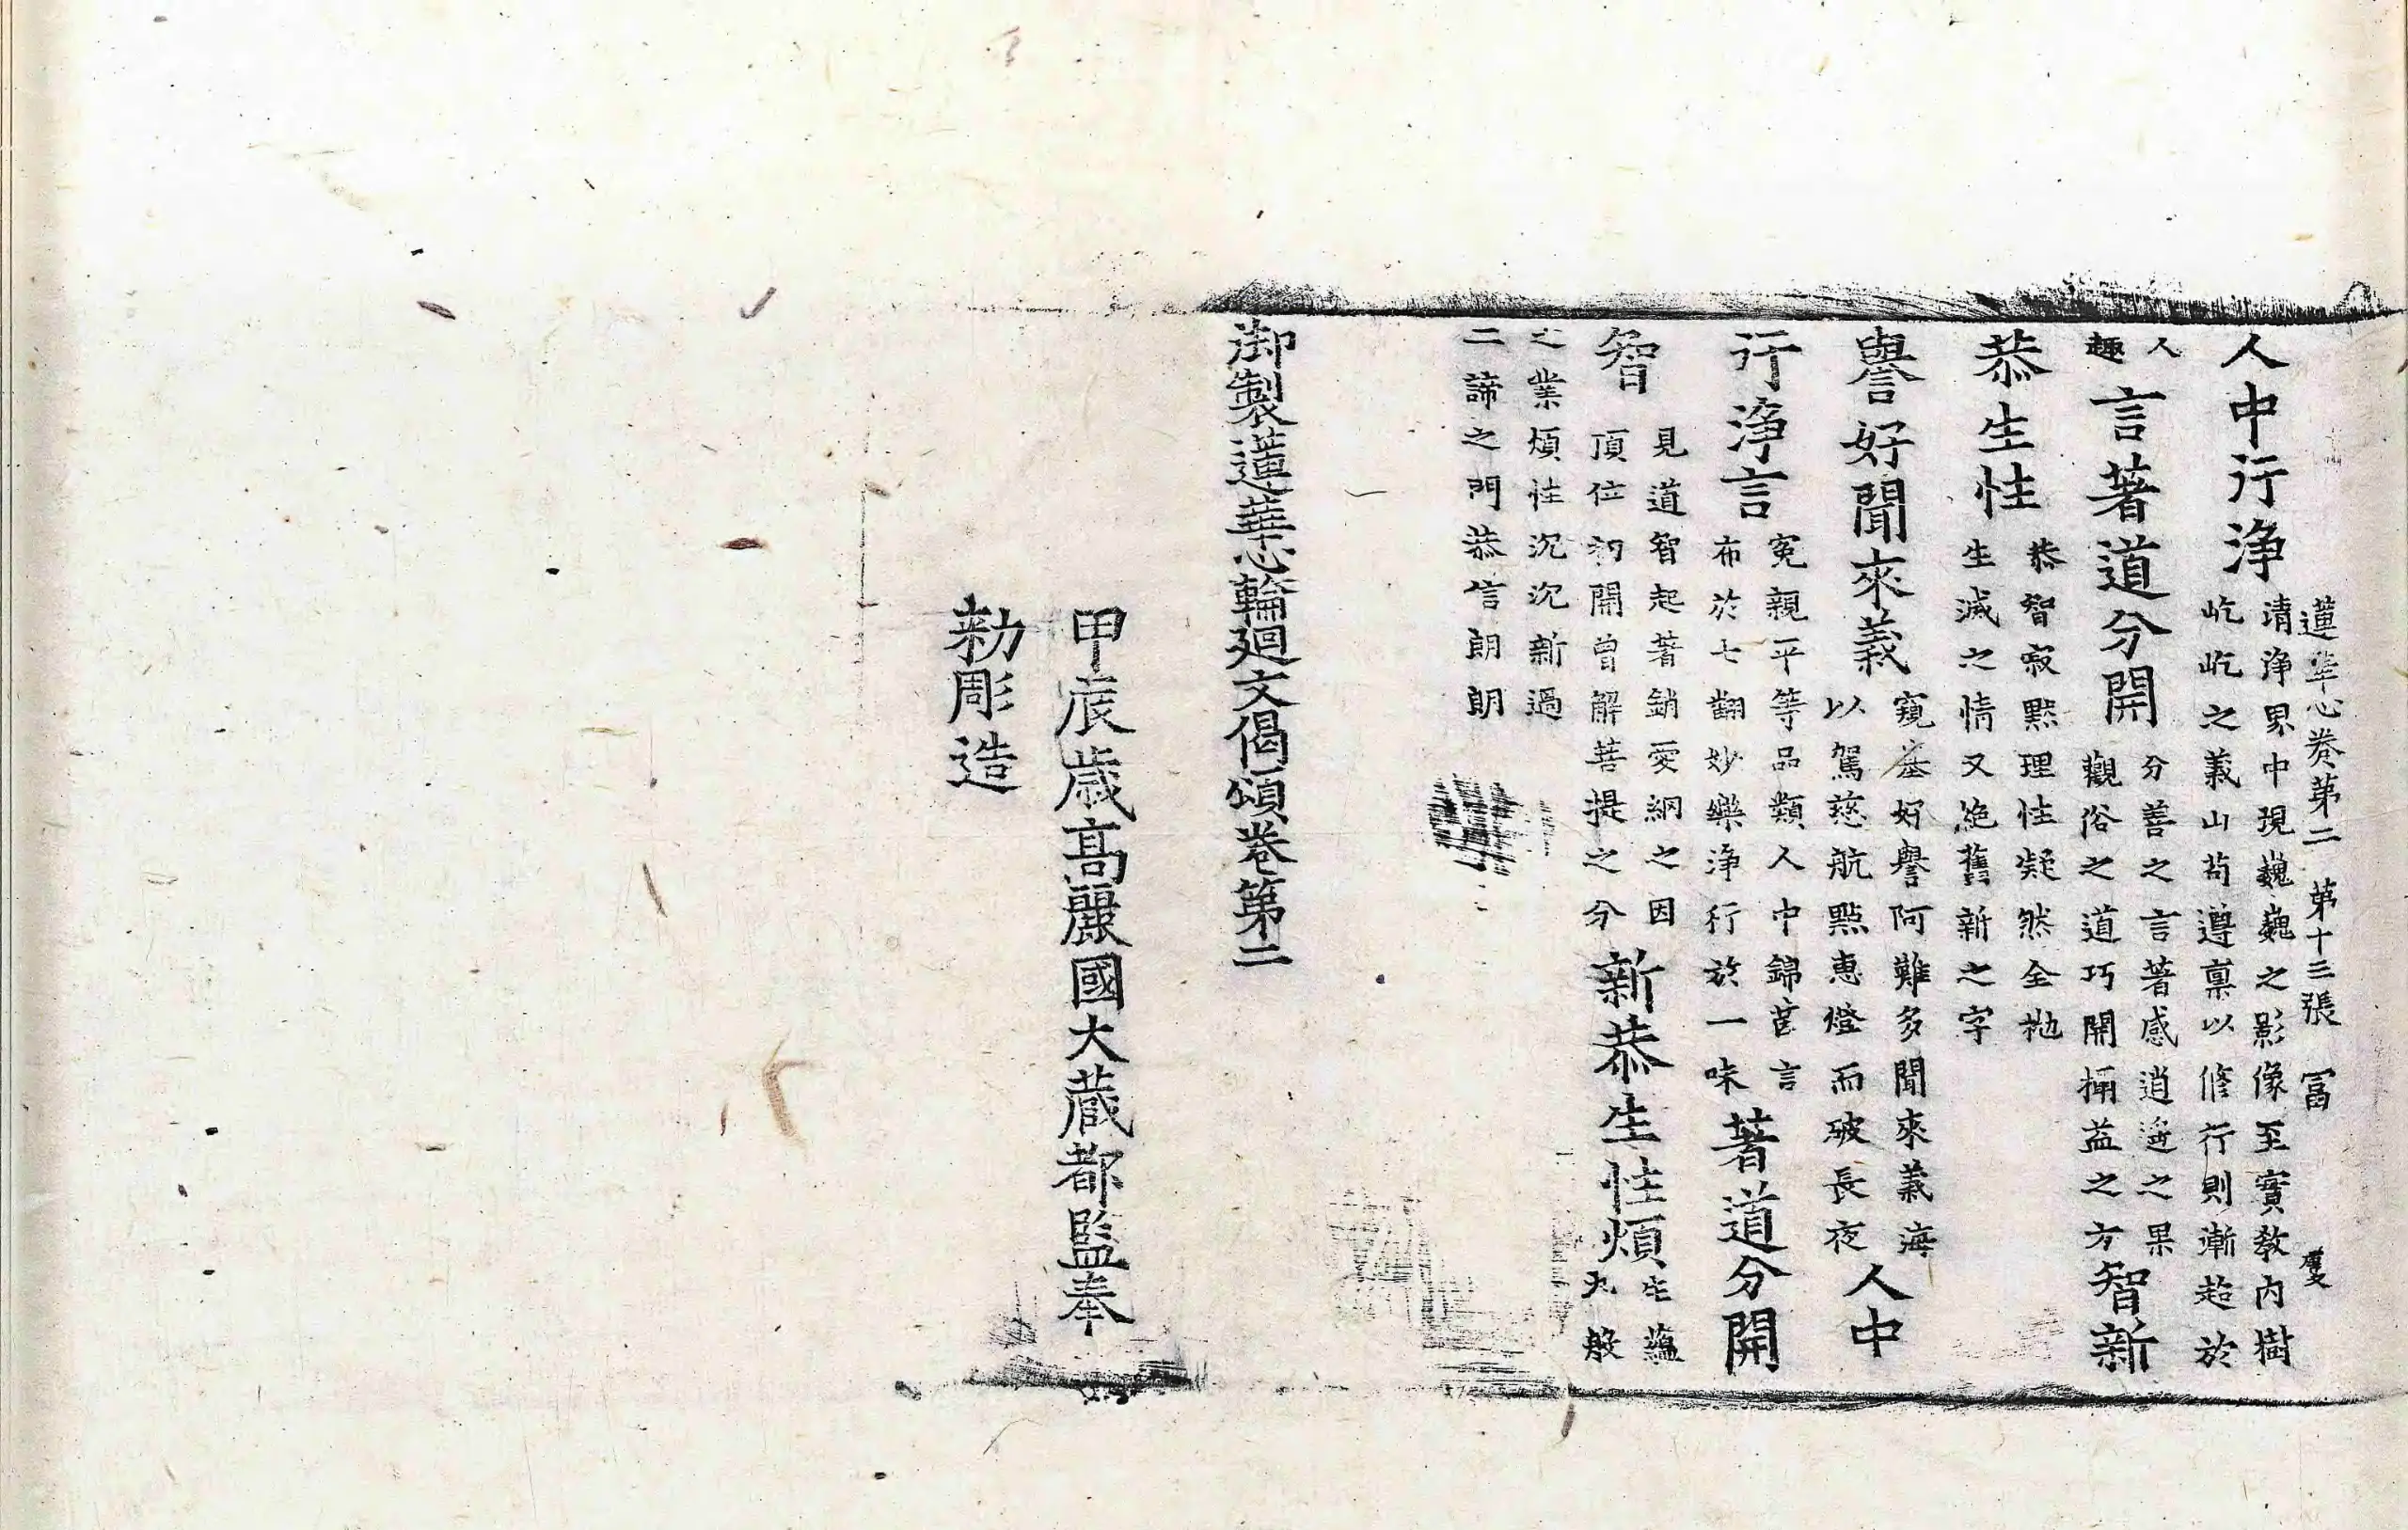 蓮華心卷第二 第十三張 冨
人中行淨 清淨界中現巍巍之影像至實敎內樹
屹屹之義山苟遵禀以修行則漸超於
人
趣 言著道分開 分善之言著感逍遙之果
觀俗之道巧開捅益之方 智新
恭生性 恭智寂默理性凝然全拋
生滅之情又絶舊新之字
譽好聞來義 窺基好譽阿難多聞來義海
以駕慈航點惠燈而破長夜 人中
行淨言 寃親平等品類人中錦莒言
布於七翻妙樂淨行於一味 著道分開
智 見道智起著銷愛網之因
頂位初開曾解菩提之分 新恭生性煩 生蘊
九般
之業煩性沉沉新過
二諦之門恭信朗朗
御製蓮華心輪廻文偈頌卷第二
甲辰歲高麗國大藏都監奉
勅彫造